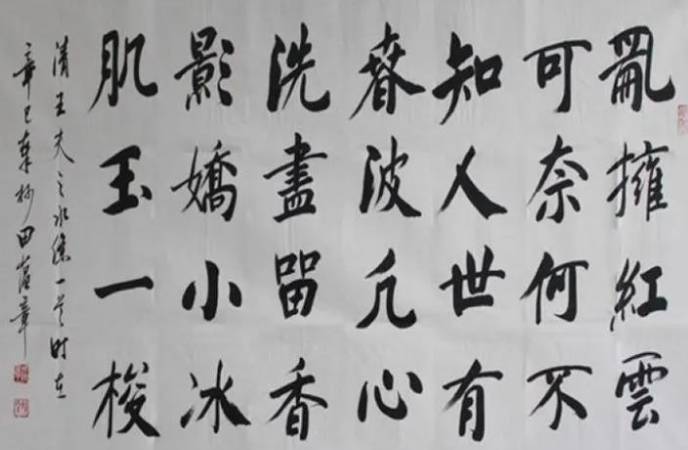 亂擁紅雲
可奈何不
知人世有
春波凡心
洗盡留香
影嬌小冰
肌玉一梭
清王夫之水僊一首時在
辛巳杪田蘊章